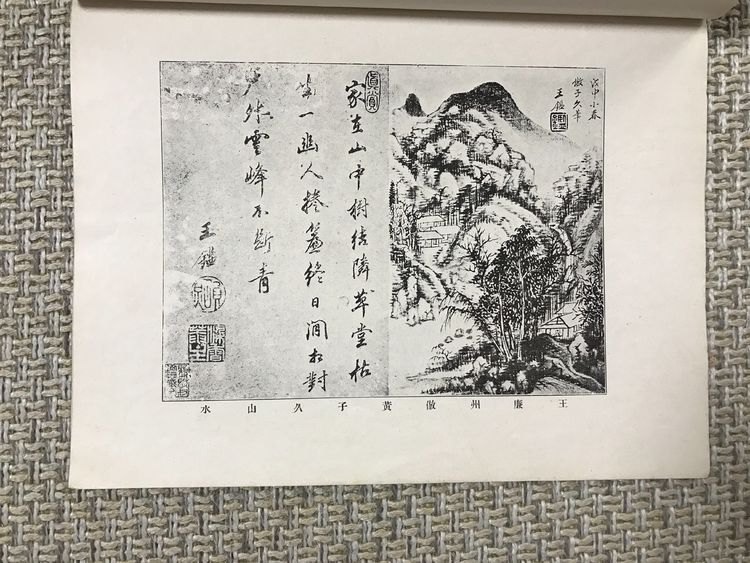 戊申小春
倣子久筆
王鑑
真賞
家在山中樹結隣草堂枯
坐一幽人捲簾終日閒相對
戶外雲峰不斷青
王鑑
王廉州倣黃子久山水